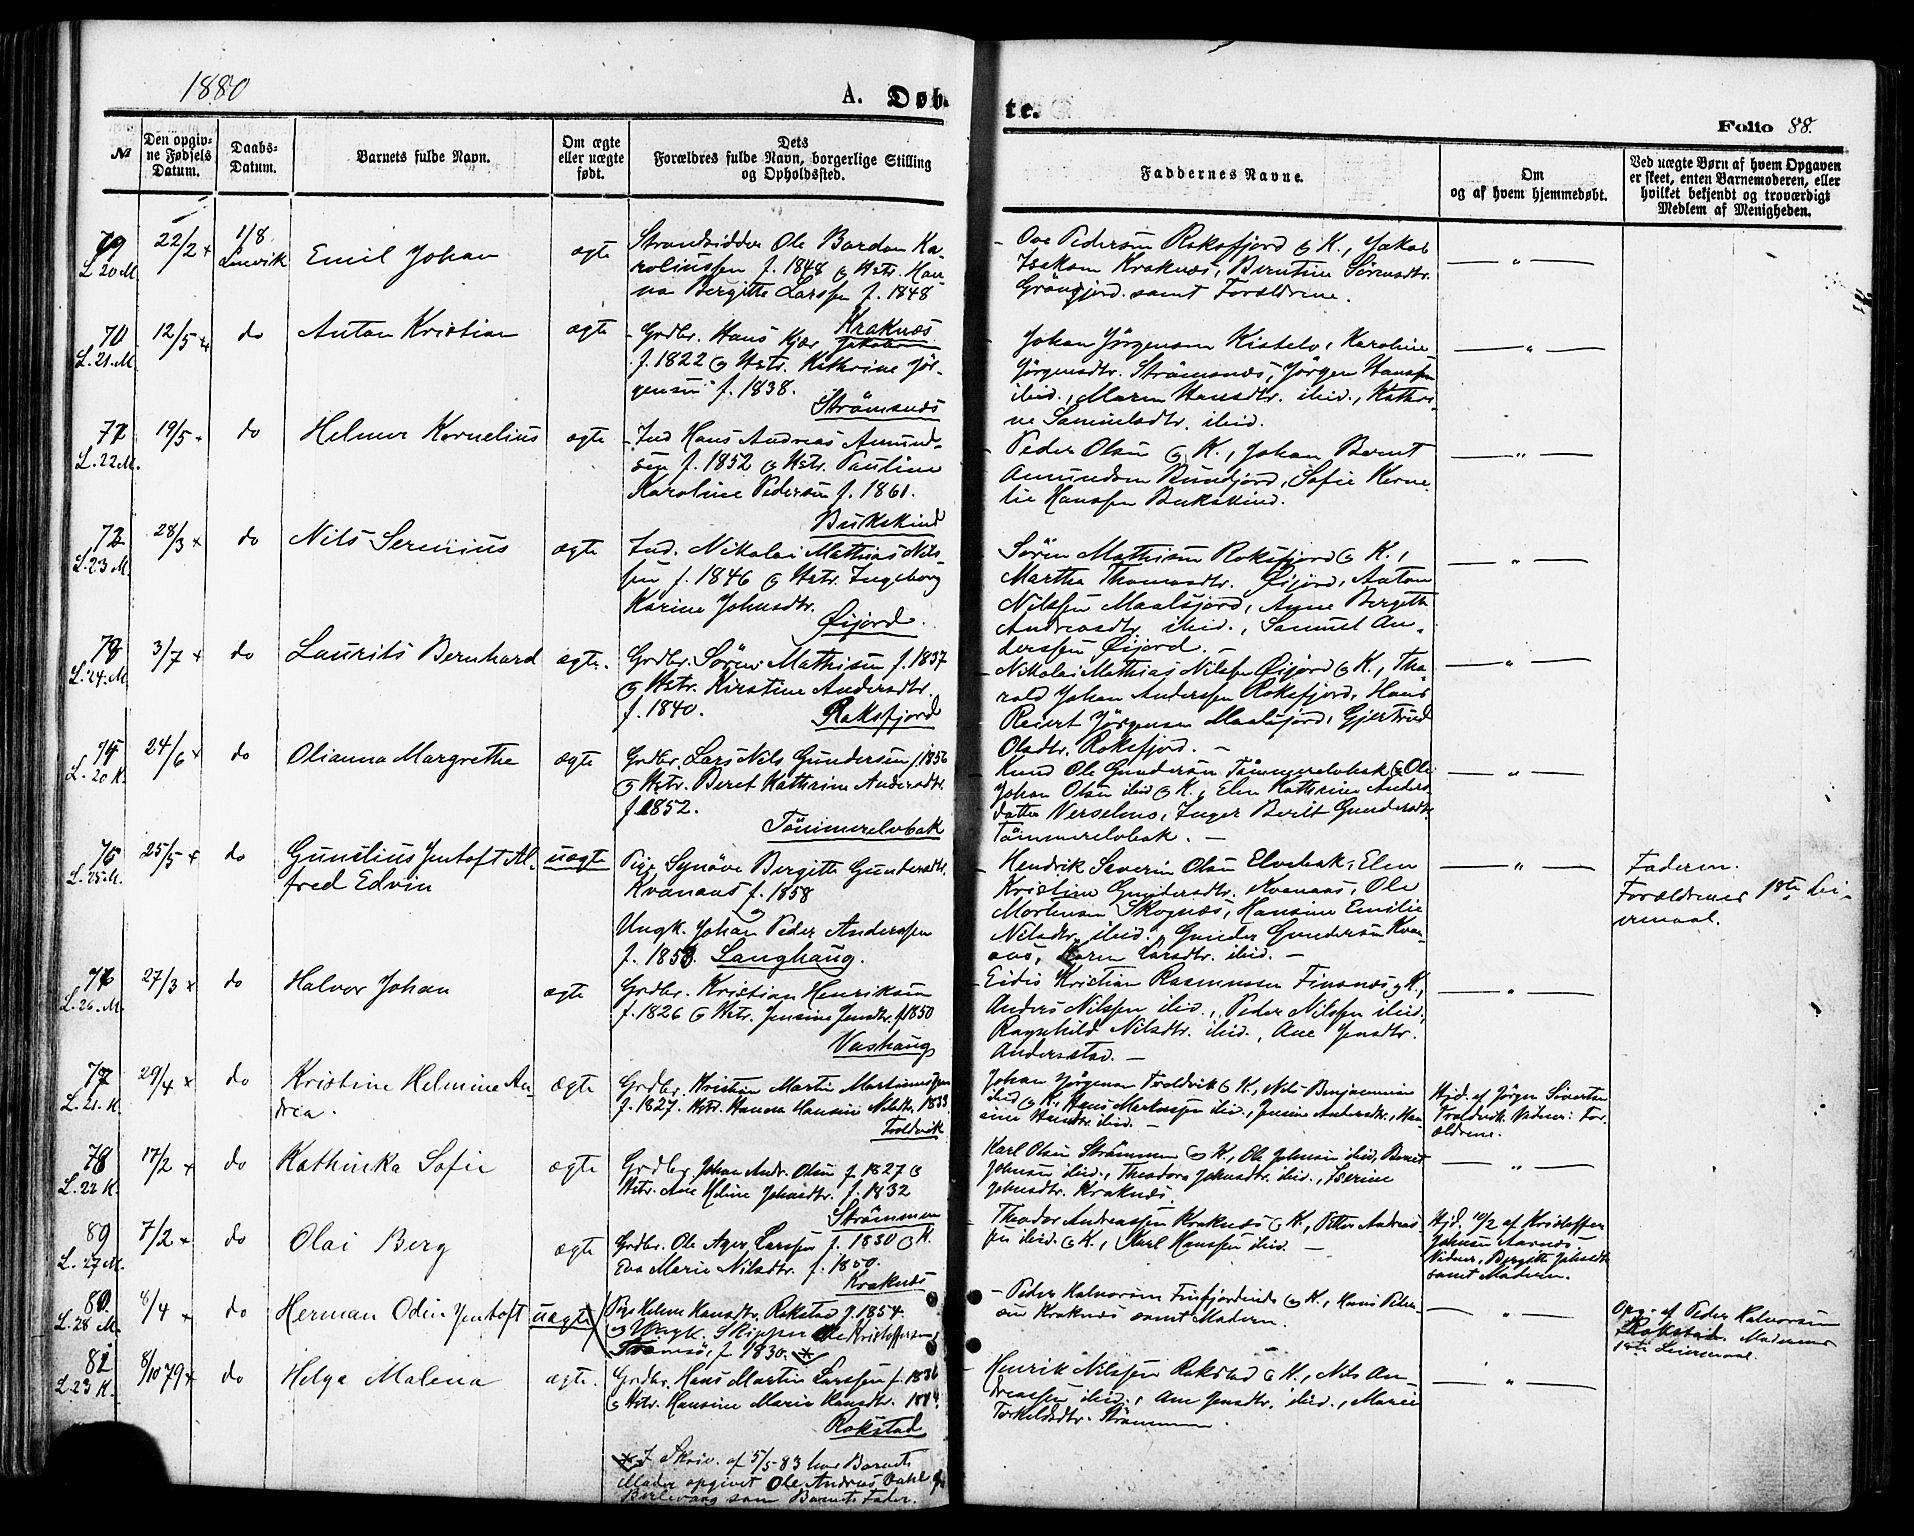 1880
A. Døb-
te.
Folio 88.
№
Den opgiv-
ne Fødsels
Datum.
Daabs-
Datum.
Barnets fulde Navn.
Om ægte
eller uægte
født.
Dets
Forældres fulde Navn, borgerlige Stilling
og Opholdssted.
Faddernes Navne.
Om
og af hvem hjemmedøbt.
Ved uægte Børn af hvem Opgaven
er skeet, enten Barnemoderen, eller
hvilket bekjendt og troværdigt
Medlem af Menigheden.
L. 20 M.
22/2
1/8
Lenvik
Emil Johan
ægte
Strandsidder Ole Bardon Ka-
roliussen f. 1848 og Hstr. Han-
na Bergitte Larssen f. 1848
Kraknæs
Ove Pedersen Roksfjord og K., Jakob
Isaksen Kraknæs, Berntine Sørensdtr.
Grönfjord samt Forældrene.
70
L. 21. M.
12/5
do
Anton Kristian
ægte
Grdbr. Hans Kjær Jakobsen
f. 1822 og Hstr. Kathrine Jör-
gensen f. 1838.
Strömsnæs
Johan Jörgensen Kistelv, Karoline
Jörgensdtr. Strömsnæs, Jörgen Hanssen
ibid., Maren Hansdtr. ibid., Kathri-
ne Samuelsdtr. ibid.
71
L. 22 M.
19/5
do
Helmer Kornelius
ægte
Ind Hans Andreas Amund-
sen f. 1852 og Hstr. Pauline
Karoline Pedersen f. 1861.
Bukskind
Peder Olsen og K., Johan Bernt
Amundsen Bundfjord, Sofie Korne-
lie Hanssen Bukskind.
72
L. 23 M.
28/3
do
Nils Serenius
ægte
Ind. Nikolai Mathias Nils-
sen f. 1846 og Hstr. Ingeborg
Karine Johnsdtr.
Øijord.
Sören Mathisen Roksfjord og K.,
Martha Thomasdtr. Øijord, Anton
Nilssen Maalsjord, Anne Bergitte
Andreasdtr. ibid., Samuel An-
derssen Øijord.
L. 24. M.
3/7
do
Laurits Bernhard
ægte.
Grdbr. Sören Mathisen f. 1837
og Hstr. Kirstine Andersdtr.
f. 1840.
Roksfjord
Nikolai Mathias Nilsen Øijord og K., Tho-
rald Johan Anderssen Roksfjord, Hans
Reiert Jörgensen Maalsjord, Gjertrud
Olsdtr. Roksfjord.
L. 20 K.
24/6
do
Olianna Margrethe
ægte
Grdbr. Lars Nils Gundersen f. 1856
og Hstr. Beret Kathrine Andersdtr.
f. 1852.
Tömmerelvbak
Knud Ole Gundersen Tömmerelvbak og Ole
Johan Olsen ibid og K., Elen Kathrine Anders-
datter Verselnes, Inger Berit Gundersdtr.
Tömmerelvbak.
L. 25 M.
25/5
do
Gunelius Jentoft Al-
fred Edvin
uægte
Pige Synöve Bergitte Gundersdtr.
Kvanaas f. 1858
og
Ungk. Johan Peder Anderssen
f. 1858. Langhaug.
Hendrik Severin Olsen Elvebak, Elen
Kristine Gundersdtr. Kvanaas, Ole
Mortensen Skognæs, Hansine Emilie
Nilsdtr. ibid., Gunder Gundersen Kvan-
aas, Karen Larsdtr. ibid.
Faderen.
Forældrenes 1ste Lei-
ermaal.
L. 26. M.
27/3
do
Halvor Johan
ægte
Grdbr. Kristian Henriksen
f. 1826 og Hstr. Jensine Jensdtr. f. 1850
Vashaug
Eidis Kristian Rasmussen Finsnæs og K.,
Anders Nilssen ibid., Peder Nilssen ibid,
Ragnhild Nilsdtr. ibid., Ane Jensdtr.
Andersstad.
77
L. 21. K.
29/4
do
Kristine Helmine An-
drea.
ægte
Grdbr. Kristen Martin Martinussen
f. 1827. Hstr. Hanna Hansine Nilsdtr. 1833
Troldvik
Johan Jörgensen Troldvik og K., Nils Benjaminsen
ibid og K., Hans Markussen ibid., Jensine Andersdtr., Han-
sine Hansdtr. ibid.
Hjd. af Jörgen Sivertsen
Troldvik. Vidner: For-
ældrene.
78
L. 22 K.
17/2
do
Kathinka Sofie
ægte
Grdbr. Johan Andr. Olsen f. 1827 og
Hstr. Ane Heline Johnsdtr. f. 1832
Strömmen
Karl Olsen Strömmen og K., Ole Johnsen ibid, Bernt
Johnsen ibid., Theodora Johnsdtr. ibid., Iverine
Johnsdtr. Kraknæs.
L. 27 M.
7/2
do
Olai Berg
ægte
Grdbr. Ole Ager Larssen f. 1830 og K
Eva Marie Nilsdtr. f. 1850.
Kraknæs
Theodor Andreassen Kraknæs og K., Petter Andreas-
sen ibid. og K., Karl Hanssen ibid.
Hjd. 10/2 af Kristoffer
Johnsen Aarnæs
Vidner, Bergitte Johnsdtr
samt Moderen.
L. 28 M.
8/4
do
Herman Odin Jentoft
uægte
Pige Helene Hansdtr. Rokstad f. 1854.
og Ungk. Skipper Ole Kristoffersen
Tromsö, f. 1830.
Peder Halvorsen Finfjordeide og K., Hans Peter-
sen Kraknæs samt Moderen.
Opg. af Peder Halvorsen
Rokstad. Moderens
1ste Leiermaal.
L. 23 K.
8/10 79
do
Helga Malena
ægte.
Grdbr. Hans Martin Larssen f. 1836
og Hstr. Hansine Marie Hansdtr. 1844.
Rokstad
Henrik Nilssen Rokstad og K., Nils An-
dreassen ibid., Ane Jensdtr. ibid., Marie
Torkeldsdtr. Strömmen.
I Skriv. af 5/5 83 har Barnets
Moder opgivet Ole Andreas Dahl fra
Berlevaag som Barnets Fader.